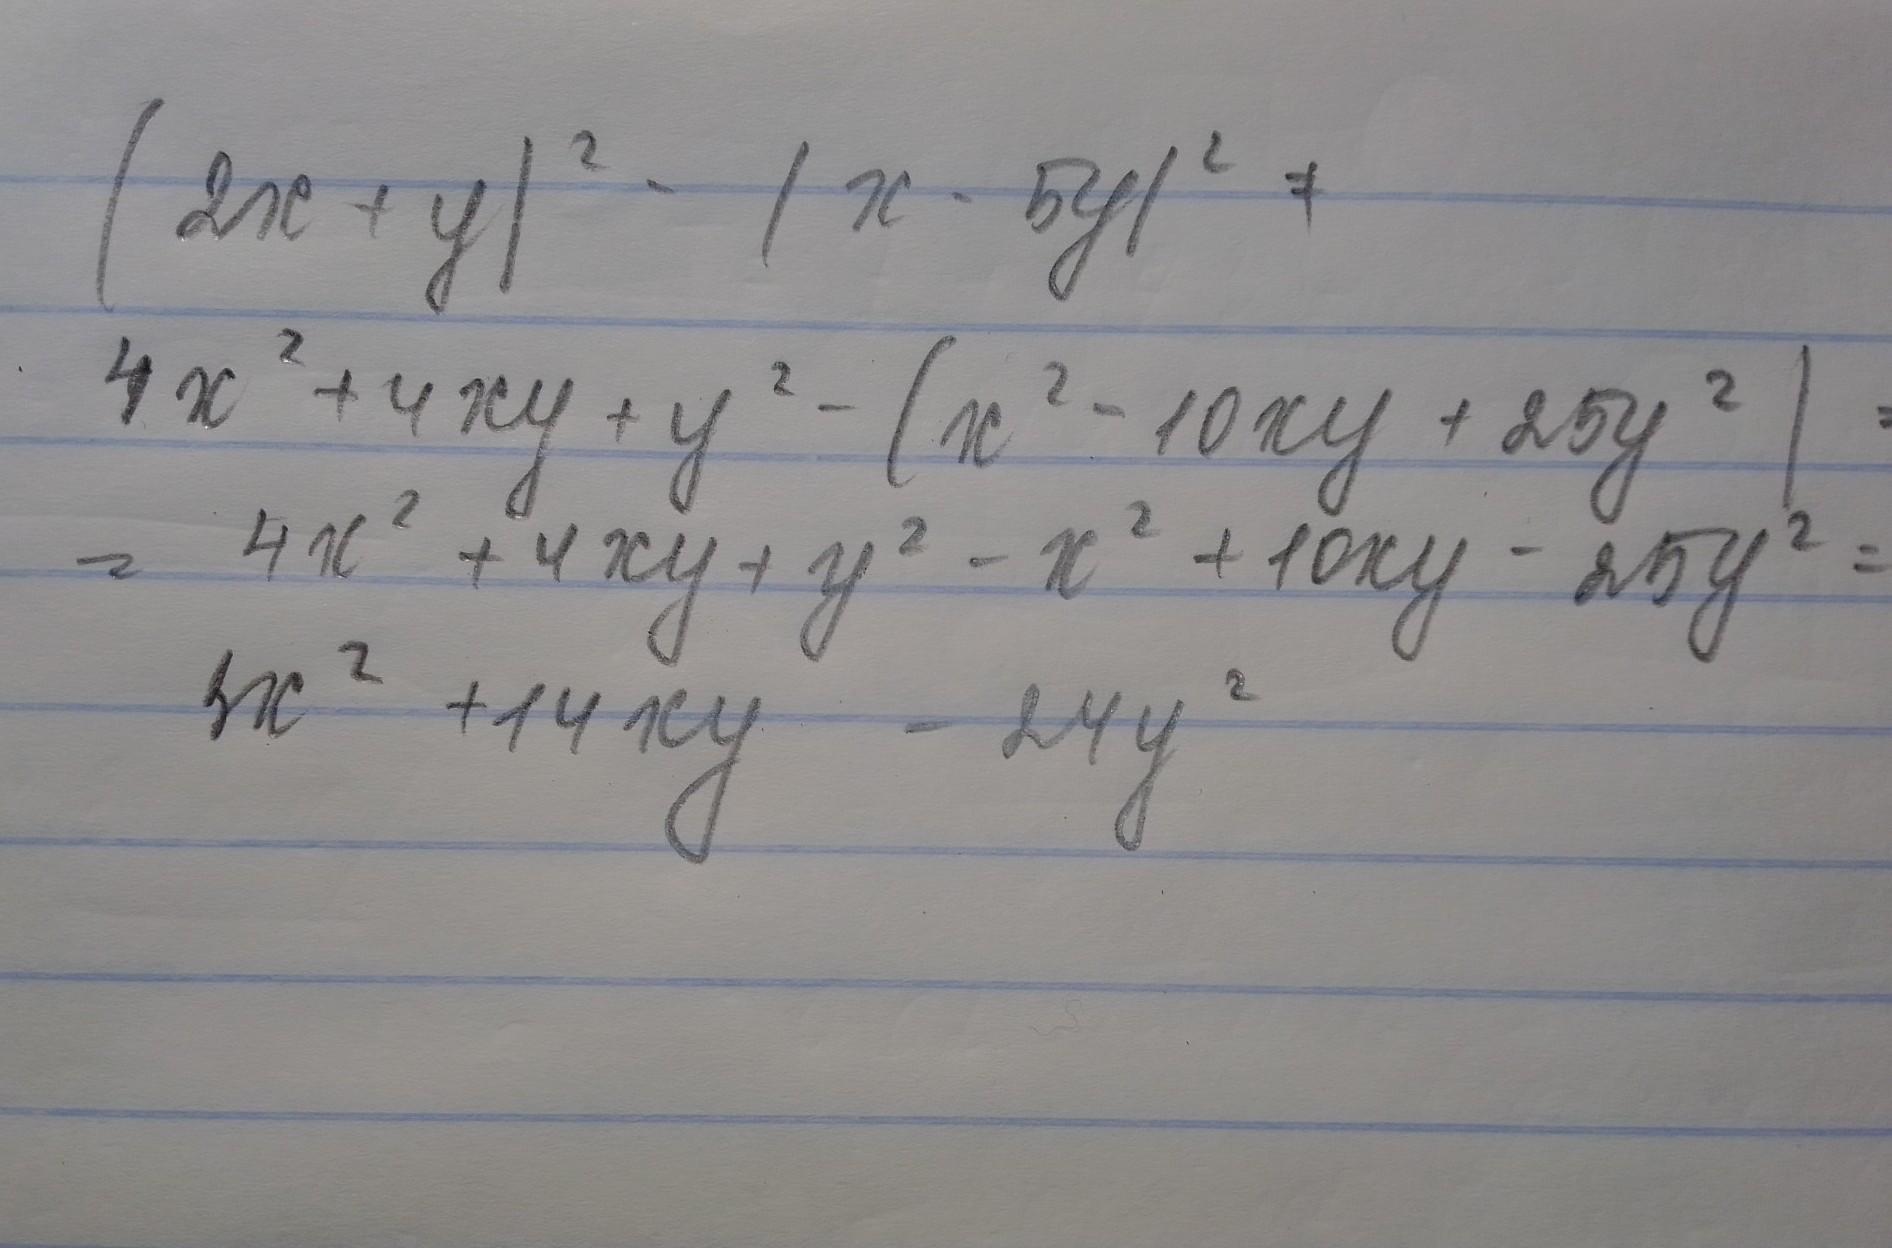 (2x + y)² - (x - 5y)² =
4x² + 4xy + y² - (x² - 10xy + 25y²) =
= 4x² + 4xy + y² - x² + 10xy - 25y² =
3x² + 14xy - 24y²